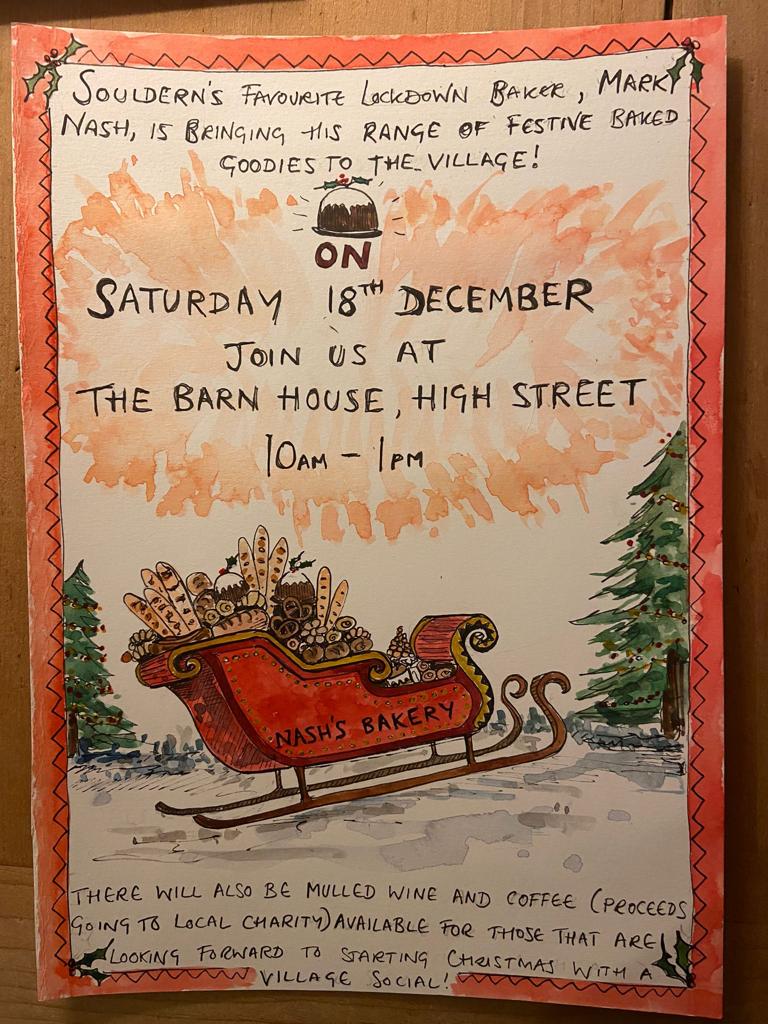 SOULDERN'S FAVOURITE LOCKDOWN BAKER, MARK
NASH, IS BRINGING HIS RANGE OF FESTIVE BAKED
GOODIES TO THE VILLAGE!
ON
SATURDAY 18TH DECEMBER
JOIN US AT
THE BARN HOUSE, HIGH STREET
10AM - 1PM
NASH'S BAKERY
THERE WILL ALSO BE MULLED WINE AND COFFEE (PROCEEDS
GOING TO LOCAL CHARITY) AVAILABLE FOR THOSE THAT ARE
LOOKING FORWARD TO STARTING CHRISTMAS WITH A
VILLAGE SOCIAL!